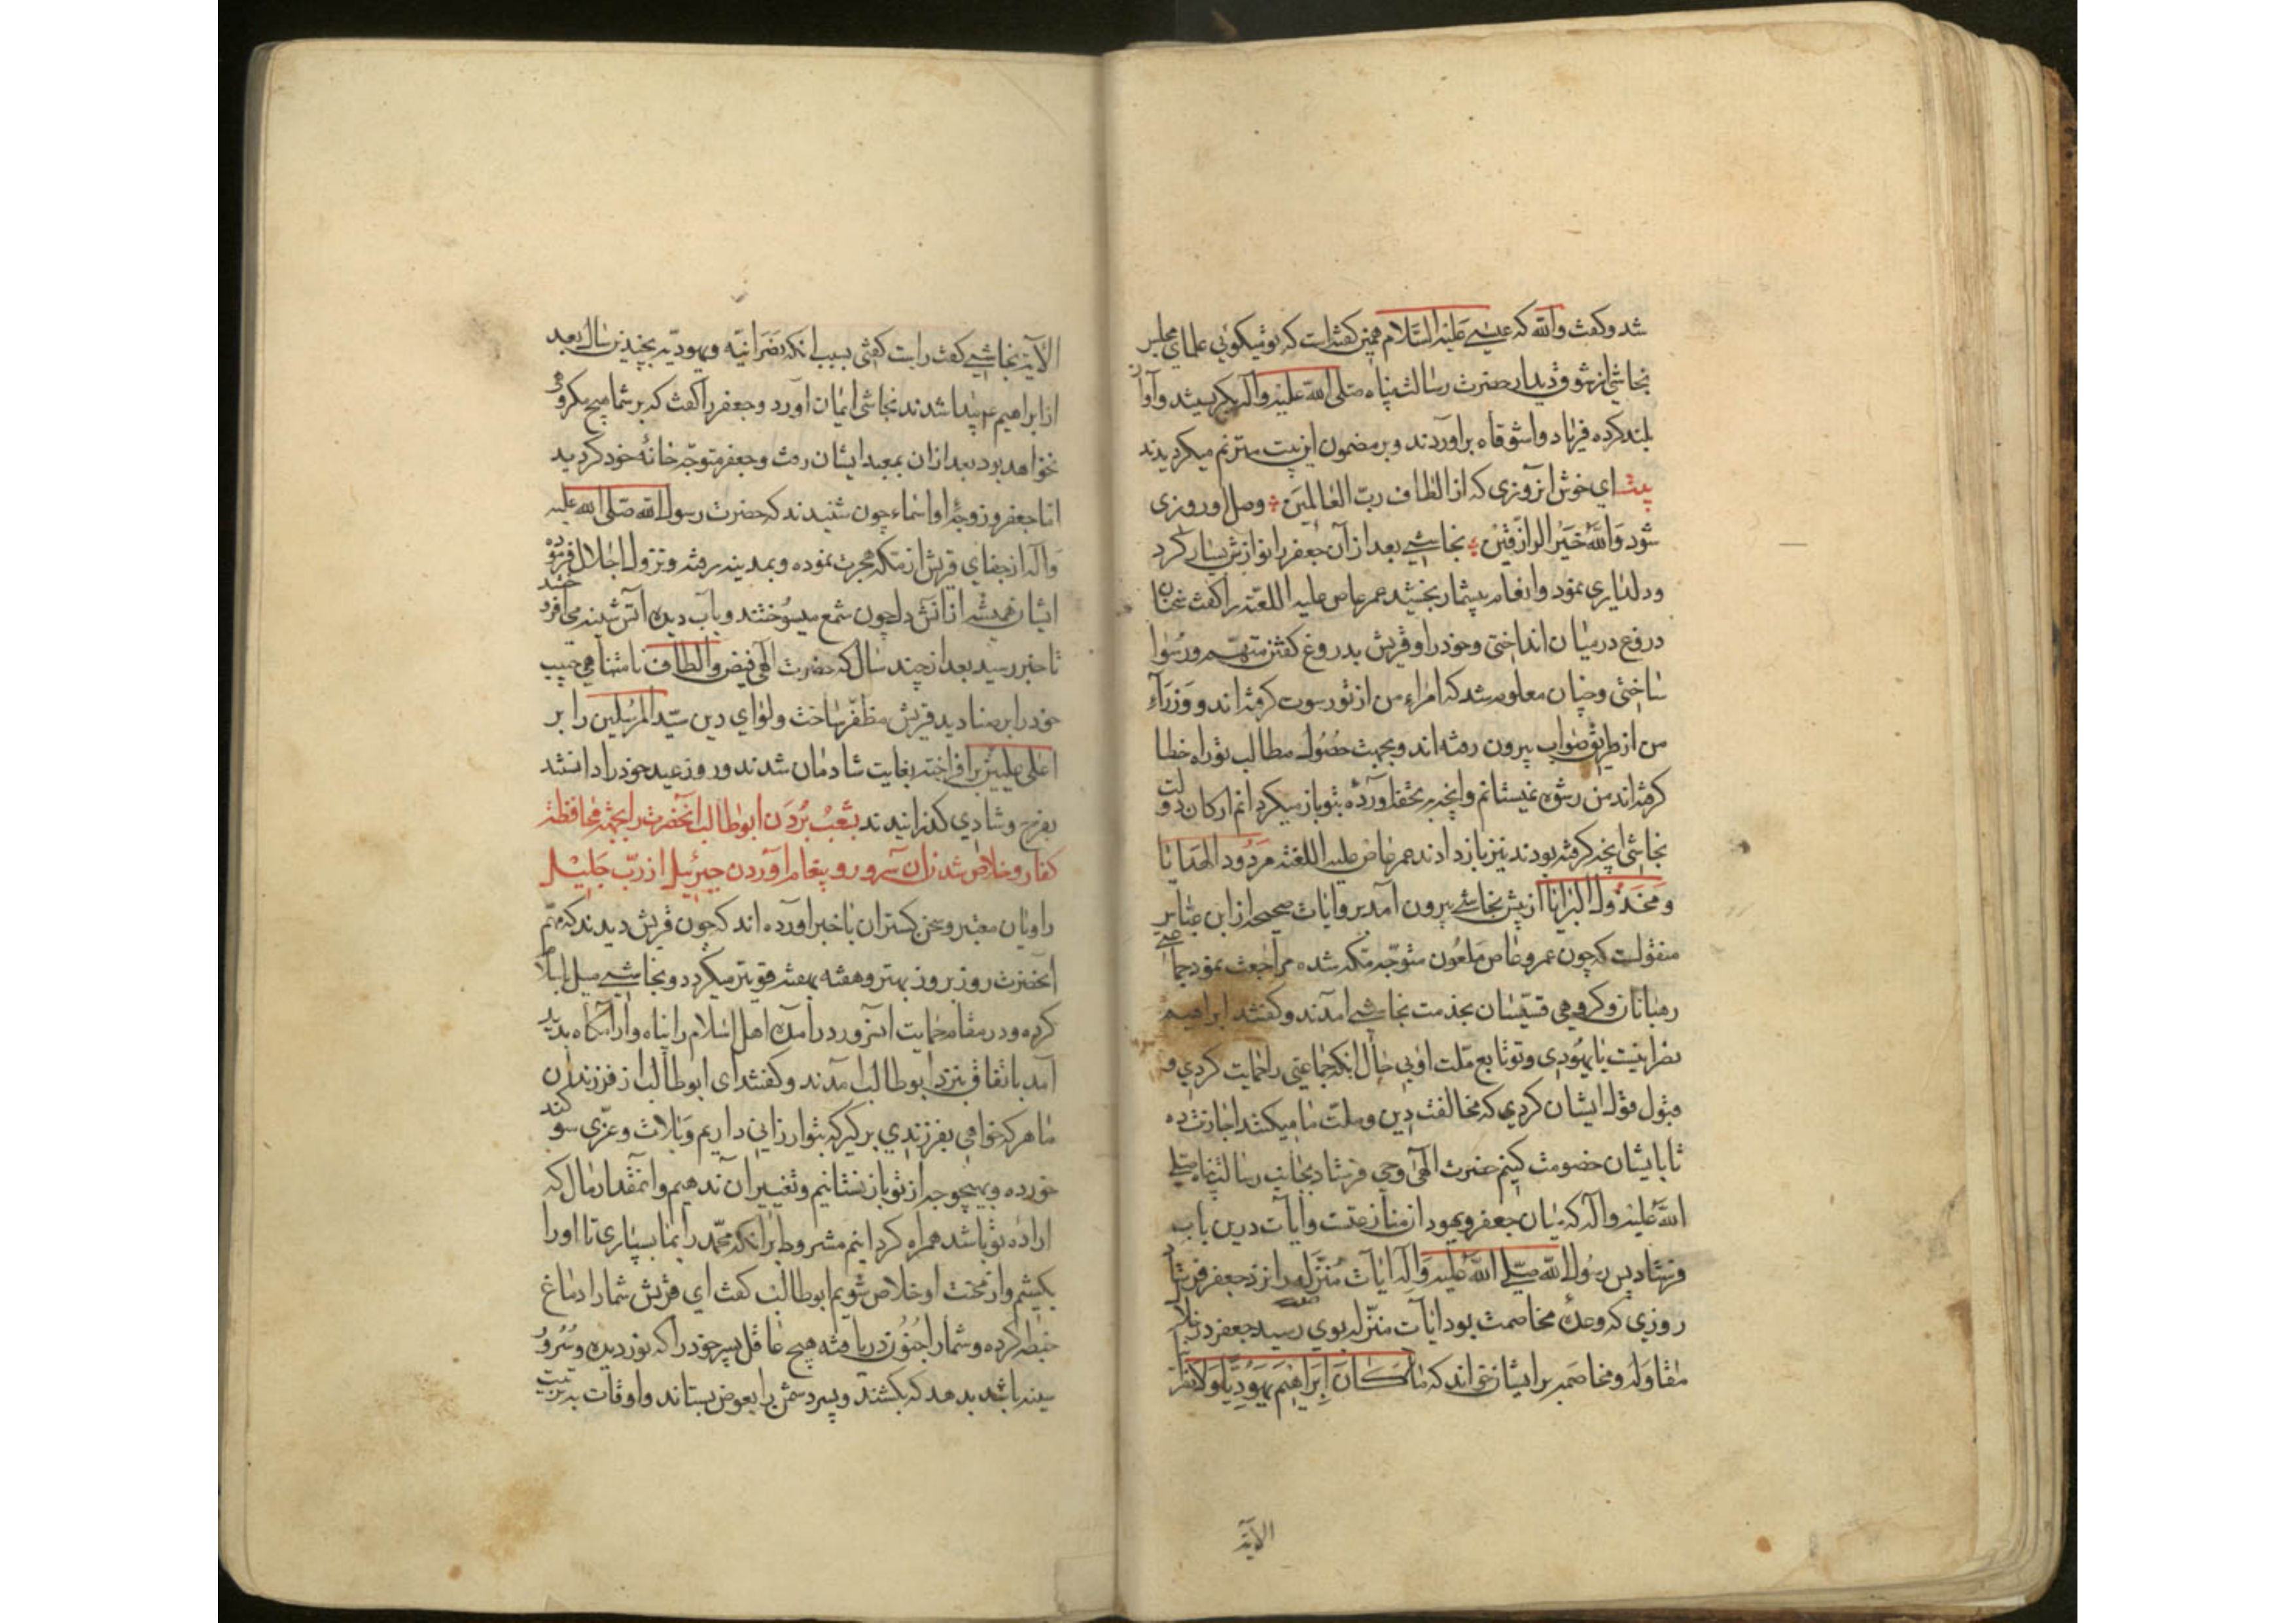 شد و کفت والله که عیسی علیه السلام همین کفته است که تو میکوئی علمای مجلس
نجاشی از شوق دیدار حضرت رسالت پناه صلی الله علیه وآله بکریستند وآواز
بلند کرده فریاد واشوقاه برآوردند و بر مضمون این بیت مترنم میکردیدند
بیت ای خوش انروزی که از الطاف رب العالمین وصل او روزی
شود والله خیر الرازقین نجاشی بعد از آن جعفر را نوازش بسیار کرد
ودلداری نمود وانعام بیشمار بخشید عمر عاص علیه اللعنه را کفت سخنان
دروغ در میان انداختی وخود را وقریش بدروغ کفتن متهم ورسوا
ساختی وچنان معلوم شد که امراء من از تو رسوت کرفته اند و وزراء
من از طریق صواب بیرون رفته اند وبجهت حصول مطالب تو راه خطا
کرفته اند من رشوه نمیستانم وانچه بتحفه آورده بتو باز میکردانم ارکان دولت
نجاشی انچه کرفته بودند نیز باز دادند عمر عاص علیه اللعنه مردود الهدایا
ومخذول البرایا از پیش نجاشی بیرون آمد بروایات صحیحه از ابن عباس
منقولست که چون عمرو عاص ملعون متوجه مکه شده مراجعت نمود جماعتی
رهبانان وکروهی قسیسان بخدمت نجاشی آمدند وکفتند ابراهیم
نصرانیست یا یهودی وتو تابع ملت اوئی حال انکه جماعتی را حمایت کردی و
قبول قول ایشان کردی که مخالفت دین وملت ما میکنند اجازت ده
تا با ایشان خصومت کنیم حضرت الهی وحی فرستاد بجانب رسالت پناه صلی
الله علیه وآله که میان جعفر ویهود از منازعتست وآیات درین باب
فرستاد پس رسول الله صلی الله علیه وآله آیات منزله را نزد جعفر فرستاد
روزی که وعده مخاصمت بود آیات منزله بوی رسید جعفر در خلال
مقاوله ومخاصمه بر ایشان خواند که ما کان ابراهیم یهودیا ولا نصرانیا
الآیة
الآیة نجاشی کفت راست کفتی بسبب انکه نصرانیه ویهودیه بچندین سال بعد
از ابراهیم پیدا شدند نجاشی ایمان آورد وجعفر را کفت که بر شما هیچ مکروه
نخواهد بود بعد ازان بمعبد ایشان رفت وجعفر متوجه خانه خود کردید
اما جعفر وزوجه او اسماء چون شنیدند که حضرت رسول الله صلی الله علیه
وآله از جفای قریش از مکه هجرت نموده وبمدینه رفته ونزول اجلال فرموده
ایشان همیشه از آتش دل چون شمع میسوختند وبآب دیده آتش سینه می افروختند
تا خبر رسید بعد از چند سال که حضرت الهی فیض والطاف نامتناهی حبیب
خود را بر صنادید قریش مظفر ساخت ولوای دین سید المرسلین را بر
اعلی علیین برافراخته بغایت شادمان شدند و روز عید خود را دانستند
بفرح وشادی کذرانیدند بشعب بردن ابوطالب آنحضرت را بجهة محافظة
کفار وخلاص شدن آن سرور و پیغام آوردن جبرئیل از رب جلیل
راویان معتبر وسخن کستران باخبر آورده اند که چون قریش دیدند که مهم
آنحضرت روز بروز بهتر وهفته بهفته قویتر میکردد ونجاشی میل باسلام
کرده ودر مقام حمایت آنسرور در آمده اهل اسلام را پناه وآرامکاه پدید
آمد باتفاق بنزد ابوطالب آمدند وکفتند ای ابوطالب از فرزندان
ما هر که خواهی بفرزندی برکیر که بتو ارزانی داریم وبلات وعزی سوکند
خورده وبهیچوجه از تو باز نستانیم وتغییر آن ندهیم وآنمقدار مال که
اراده تو باشد همراه کردانیم مشروط بر انکه محمد را بما بسپاری تا او را
بکشیم واز محنت او خلاص شویم ابوطالب کفت ای قریش شما را دماغ
خبطه کرده وشما را جنون دریافته هیچ عاقل پسر خود را که نور دیده وسرور
سینه باشد بدهد که بکشند وپسر دشمن را بعوض بستاند واوقات بتربیت